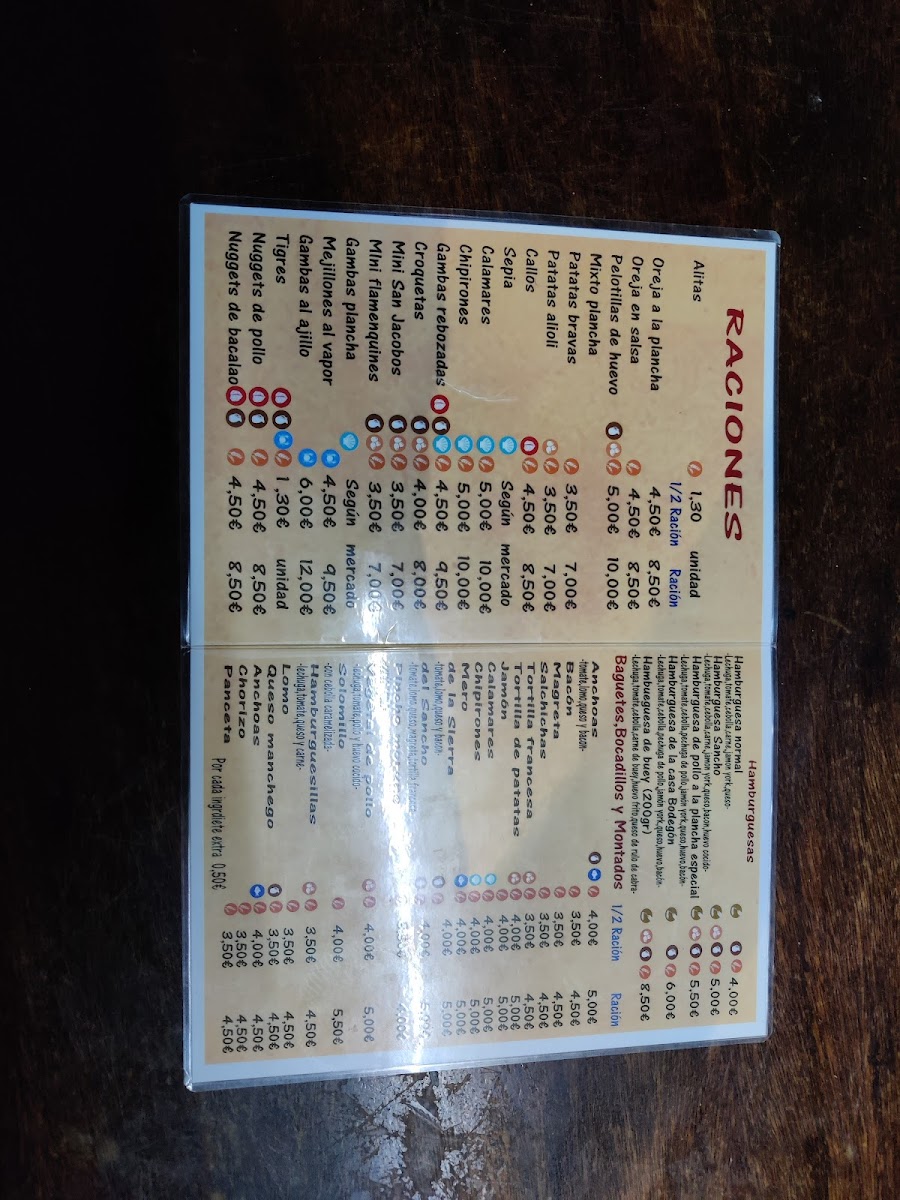 RACIONES
Alitas 1,30 unidad
1/2 Ración Ración
Oreja a la plancha 4,50€ 8,50€
Oreja en salsa 4,50€ 8,50€
Pelotillas de huevo 5,00€ 10,00€
Mixto plancha
Patatas bravas 3,50€ 7,00€
Patatas alioli 3,50€ 7,00€
Callos 4,50€ 8,50€
Sepia Según mercado
Calamares 5,00€ 10,00€
Chipirones 5,00€ 10,00€
Gambas rebozadas 4,50€ 9,50€
Croquetas 4,00€ 8,00€
Mini San Jacobos 3,50€ 7,00€
MIni flamenquines 3,50€ 7,00€
Gambas plancha Según mercado
Mejillones al vapor 4,50€ 9,50€
Gambas al ajillo 6,00€ 12,00€
Tigres 1,30€ unidad
Nuggets de pollo 4,50€ 8,50€
Nuggets de bacalao 4,50€ 8,50€
Hamburguesas
Hamburguesa normal 4,00€
-Lechuga,tomate,cebolla,carne,jamon york,queso-
Hamburguesa Sancho 5,00€
-Lechuga,tomate,cebolla,carne,jamon york,queso,bacon,huevo cocido-
Hamburguesa de pollo a la plancha especial 5,50€
-Lechuga,tomate,cebolla,pechuga de pollo,jamón york,queso,huevo,bacón-
Hamburguesa de la casa Bodegón 6,00€
-Lechuga,tomate,cebolla,pechuga de pollo,jamón york,queso,huevo,bacón-
Hambuguesa de buey (200gr) 8,50€
-Lechuga,tomate,cebolla,carne de buey,huevo frito,queso de rulo de cabra-
Baguetes,Bocadillos y Montados 1/2 Ración Ración
Anchoas 4,00€ 5,00€
-tomate,lomo,queso y bacon-
Bacón 3,50€ 4,50€
Magreta 3,50€ 4,50€
Salchichas 3,50€ 4,50€
Tortilla francesa 3,50€ 4,50€
Tortilla de patatas 4,00€ 5,00€
Jamón 4,00€ 5,00€
Calamares 4,00€ 5,00€
Chipirones 4,00€ 5,00€
Mero 4,00€ 5,00€
de la Sierra 4,00€ 5,00€
-tomate,lomo,queso y bacon-
del Sancho 4,00€
de pollo 4,00€ 5,00€
-lechuga,tomate,pollo y huevo cocido-
Solomillo 4,00€ 5,50€
-con cebolla caramelizada-
Hamburguesillas 3,50€ 4,50€
-lechuga,tomate,queso y carne-
Lomo 3,50€ 4,50€
Queso manchego 3,50€ 4,50€
Anchoas 4,00€ 4,50€
Chorizo 3,50€ 4,50€
Panceta 3,50€ 4,50€
Por cada ingrdiente extra 0,50€